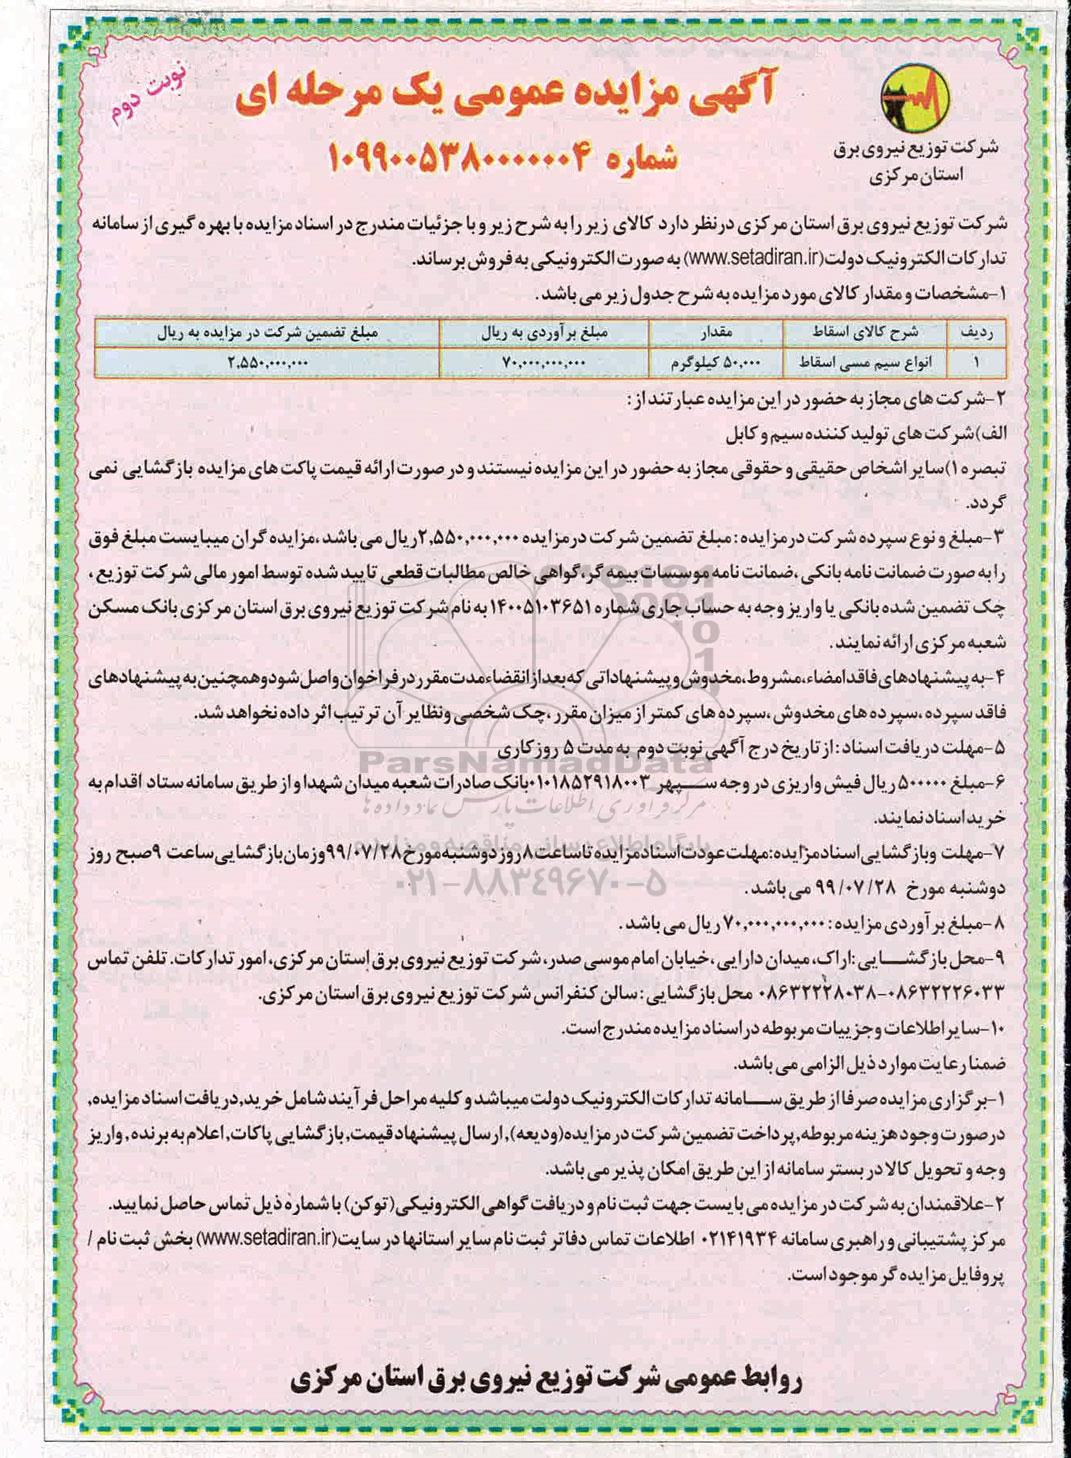 نوبت دوم
آگهی مزایده عمومی یک مرحله ای
شماره ۱۰۹۹۰۰۵۳۸۰۰۰۰۰۰۴
شرکت توزیع نیروی برق
استان مرکزی
شرکت توزیع نیروی برق استان مرکزی درنظر دارد کالای زیر را به شرح زیر و با جزئیات مندرج در اسناد مزایده با بهره گیری از سامانه
تدارکات الکترونیک دولت(www.setadiran.ir) به صورت الکترونیکی به فروش برساند.
۱-مشخصات و مقدار کالای مورد مزایده به شرح جدول زیر می باشد.
ردیف شرح کالای اسقاط مقدار مبلغ برآوردی به ریال مبلغ تضمین شرکت در مزایده به ریال
۱ انواع سیم مسی اسقاط ۵۰,۰۰۰ کیلوگرم ۷۰,۰۰۰,۰۰۰,۰۰۰ ۲,۵۵۰,۰۰۰,۰۰۰
۲-شرکت های مجاز به حضور در این مزایده عبارتند از:
الف)شرکت های تولید کننده سیم و کابل
تبصره ۱)سایر اشخاص حقیقی و حقوقی مجاز به حضور در این مزایده نیستند و در صورت ارائه قیمت پاکت های مزایده بازگشایی نمی
گردد.
۳-مبلغ و نوع سپرده شرکت درمزایده: مبلغ تضمین شرکت درمزایده ۲,۵۵۰,۰۰۰,۰۰۰ریال می باشد، مزایده گران میبایست مبلغ فوق
را به صورت ضمانت نامه بانکی، ضمانت نامه موسسات بیمه گر، گواهی خالص مطالبات قطعی تایید شده توسط امور مالی شرکت توزیع،
چک تضمین شده بانکی یا واریز وجه به حساب جاری شماره ۱۴۰۰۵۱۰۳۶۵۱ به نام شرکت توزیع نیروی برق استان مرکزی بانک مسکن
شعبه مرکزی ارائه نمایند.
۴-به پیشنهادهای فاقد امضاء، مشروط، مخدوش و پیشنهاداتی که بعد از انقضاء مدت مقرر در فراخوان واصل شود و همچنین به پیشنهادهای
فاقد سپرده، سپرده های مخدوش، سپرده های کمتر از میزان مقرر، چک شخصی ونظایر آن ترتیب اثر داده نخواهد شد.
۵-مهلت دریافت اسناد: از تاریخ درج آگهی نوبت دوم به مدت ۵ روز کاری
۶-مبلغ ۵۰۰۰۰۰ ریال فیش واریزی در وجه سپهر ۰۱۰۱۸۵۲۹۱۸۰۰۳بانک صادرات شعبه میدان شهدا و از طریق سامانه ستاد اقدام به
خرید اسناد نمایند.
۷-مهلت وبازگشایی اسناد مزایده: مهلت عودت اسناد مزایده تا ساعت ۸ روز دوشنبه مورخ ۹۹/۰۷/۲۸وزمان بازگشایی ساعت ۹صبح روز
دوشنبه مورخ ۹۹/۰۷/۲۸ می باشد.
۸-مبلغ برآوردی مزایده: ۷۰,۰۰۰,۰۰۰,۰۰۰ ریال می باشد.
۹-محل بازگشایی: اراک، میدان دارایی، خیابان امام موسی صدر، شرکت توزیع نیروی برق استان مرکزی، امور تدارکات. تلفن تماس
۰۸۶۳۲۲۲۶۰۳۳-۰۸۶۳۲۲۲۸۰۳۸ محل بازگشایی: سالن کنفرانس شرکت توزیع نیروی برق استان مرکزی.
۱۰-سایر اطلاعات و جزییات مربوطه در اسناد مزایده مندرج است.
ضمنا رعایت موارد ذیل الزامی می باشد.
۱-برگزاری مزایده صرفا از طریق سامانه تدارکات الکترونیک دولت میباشد و کلیه مراحل فرآیند شامل خرید, دریافت اسناد مزایده,
درصورت وجود هزینه مربوطه, پرداخت تضمین شرکت در مزایده(ودیعه), ارسال پیشنهاد قیمت, بازگشایی پاکات, اعلام به برنده, واریز
وجه و تحویل کالا در بستر سامانه از این طریق امکان پذیر می باشد.
۲-علاقمندان به شرکت در مزایده می بایست جهت ثبت نام و دریافت گواهی الکترونیکی(توکن) با شماره ذیل تماس حاصل نمایید.
مرکز پشتیبانی و راهبری سامانه ۰۲۱۴۱۹۳۴ اطلاعات تماس دفاتر ثبت نام سایر استانها در سایت(www.setadiran.ir) بخش ثبت نام /
پروفایل مزایده گر موجود است.
روابط عمومی شرکت توزیع نیروی برق استان مرکزی
ParsNamadData
مرکز فرآوری اطلاعات پارس نماد داده ها
پایگاه اطلاع رسانی مناقصه و مزایده
۰۲۱-۸۸۳۴۹۶۷۰-۵